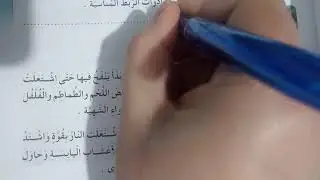 أدوات الربط المناسبة .
بدأ ينفخ فيها حتى اشتعلت
اللحم والطماطم والفلفل
الشهية .
اشتعلت النار بقوة واشتد
اليابسة وحاول